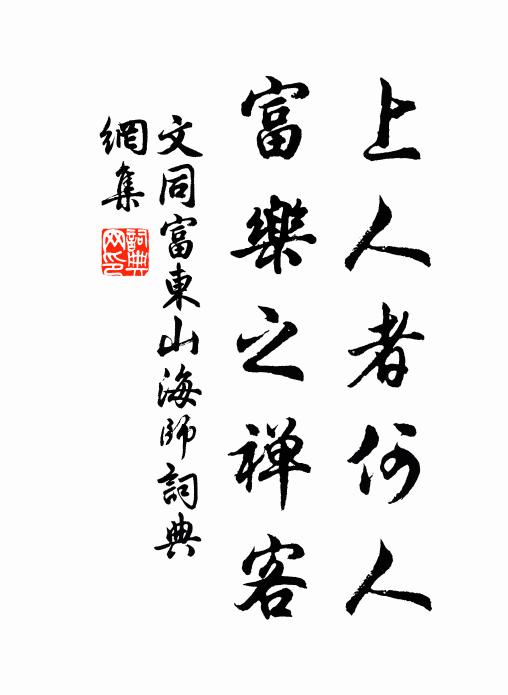 上人者何人
富樂之禅客
文同富東山海師詞典
網集
詞典網印